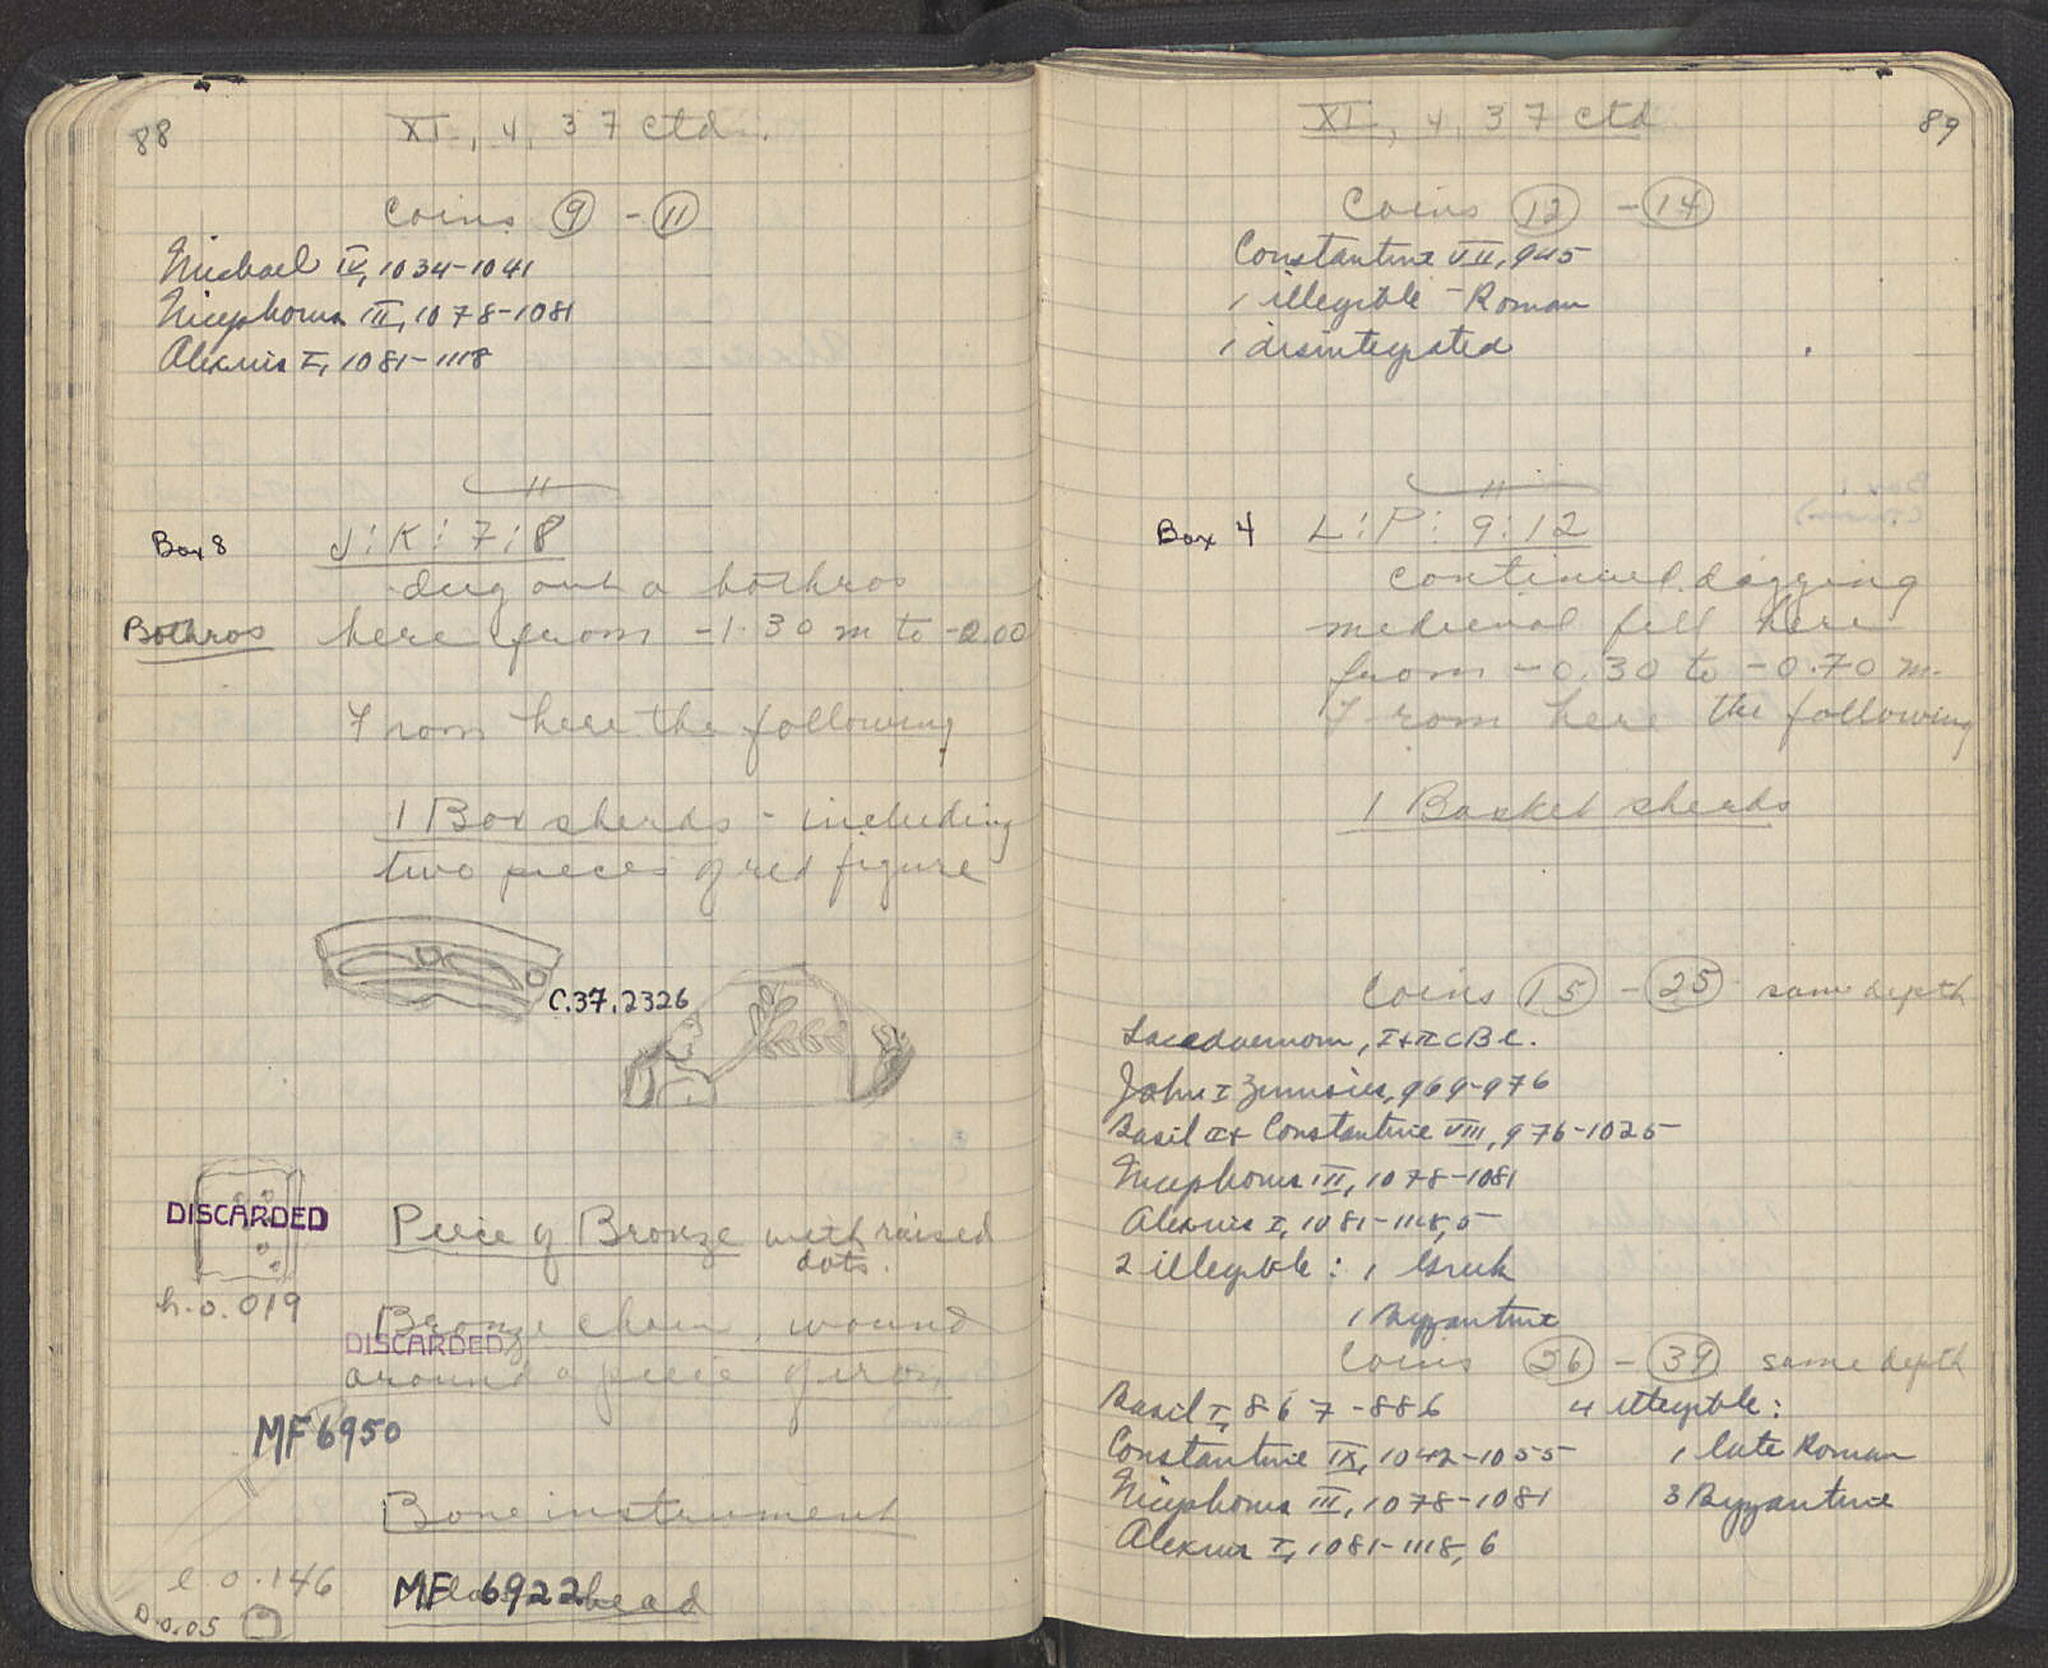 88
XI, 4, 37 ctd.
Coins 9 - 11
Michael IV, 1034-1041
Nicephorus III, 1078-1081
Alexius I, 1081-1118
Box 8
J:K:7:8
dug out a bothros
Bothros
here from -1.30 m to -2.00
From here the following
1 Box sherds - including
two pieces of red figure
C.37.2326
DISCARDED
Piece of Bronze with raised
dots.
h.0.019
Bronze chain, wound
DISCARDED
around a piece of iron
MF 6950
Bone instrument
l 0.146
MF 6922 bead
D.0.05
XI, 4, 37 ctd
89
Coins 12 - 14
Constantine VII, 945
1 illegible - Roman
1 disintegrated
Box 4
L:P: 9:12
continued digging
medieval fill here
from -0.30 to -0.70 m.
From here the following
1 Basket sherds
Coins 15 - 25 same depth
Lacedaemon, I+II C B.C.
John I Zimisces, 969-976
Basil II + Constantine VIII, 976-1025
Nicephorus III, 1078-1081
Alexius I, 1081-1118, 5
2 illegible: 1 Greek
1 Byzantine
Coins 26 - 39 same depth
Basil I, 867-886
4 illegible:
Constantine IX, 1042-1055
1 late Roman
Nicephorus III, 1078-1081
3 Byzantine
Alexius I, 1081-1118, 6